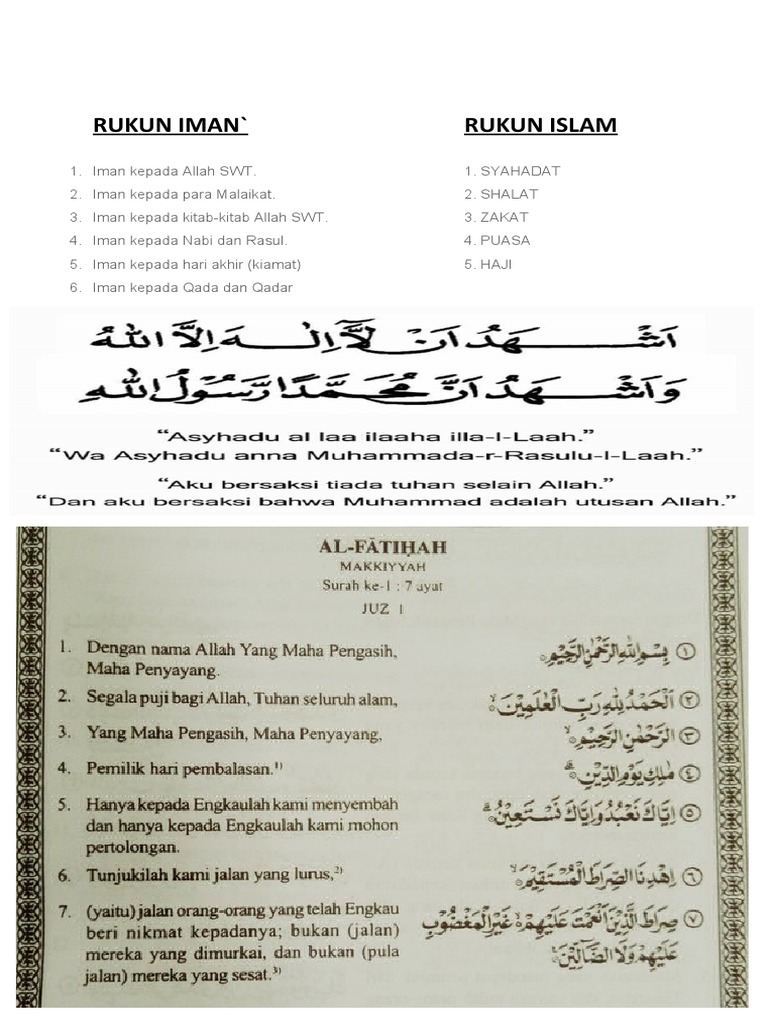 RUKUN IMAN`
1. Iman kepada Allah SWT.
2. Iman kepada para Malaikat.
3. Iman kepada kitab-kitab Allah SWT.
4. Iman kepada Nabi dan Rasul.
5. Iman kepada hari akhir (kiamat)
6. Iman kepada Qada dan Qadar
RUKUN ISLAM
1. SYAHADAT
2. SHALAT
3. ZAKAT
4. PUASA
5. HAJI
اَشْهَدُ اَنْ لَآ اِلٰهَ اِلَّا اللهُ
وَاَشْهَدُ اَنَّ مُحَمَّدًا رَّسُوْلُ اللهِ
“Asyhadu al laa ilaaha illa-l-Laah.”
“Wa Asyhadu anna Muhammada-r-Rasulu-l-Laah.”
“Aku bersaksi tiada tuhan selain Allah.”
“Dan aku bersaksi bahwa Muhammad adalah utusan Allah.”
AL-FĀTIḤAH
MAKKIYYAH
Surah ke-1 : 7 ayat
JUZ 1
1. Dengan nama Allah Yang Maha Pengasih,
Maha Penyayang.
بِسْمِ اللّٰهِ الرَّحْمٰنِ الرَّحِيْمِ ①
2. Segala puji bagi Allah, Tuhan seluruh alam,
اَلْحَمْدُ لِلّٰهِ رَبِّ الْعٰلَمِيْنَۙ ②
3. Yang Maha Pengasih, Maha Penyayang,
الرَّحْمٰنِ الرَّحِيْمِۙ ③
4. Pemilik hari pembalasan.¹⁾
مٰلِكِ يَوْمِ الدِّيْنِۗ ④
5. Hanya kepada Engkaulah kami menyembah
dan hanya kepada Engkaulah kami mohon
pertolongan.
اِيَّاكَ نَعْبُدُ وَاِيَّاكَ نَسْتَعِيْنُۗ ⑤
6. Tunjukilah kami jalan yang lurus,²⁾
اِهْدِنَا الصِّرَاطَ الْمُسْتَقِيْمَۙ ⑥
7. (yaitu) jalan orang-orang yang telah Engkau
beri nikmat kepadanya; bukan (jalan)
mereka yang dimurkai, dan bukan (pula
jalan) mereka yang sesat.³⁾
صِرَاطَ الَّذِيْنَ اَنْعَمْتَ عَلَيْهِمْ ەۙ غَيْرِ الْمَغْضُوْبِ ⑦
عَلَيْهِمْ وَلَا الضَّاۤلِّيْنَ